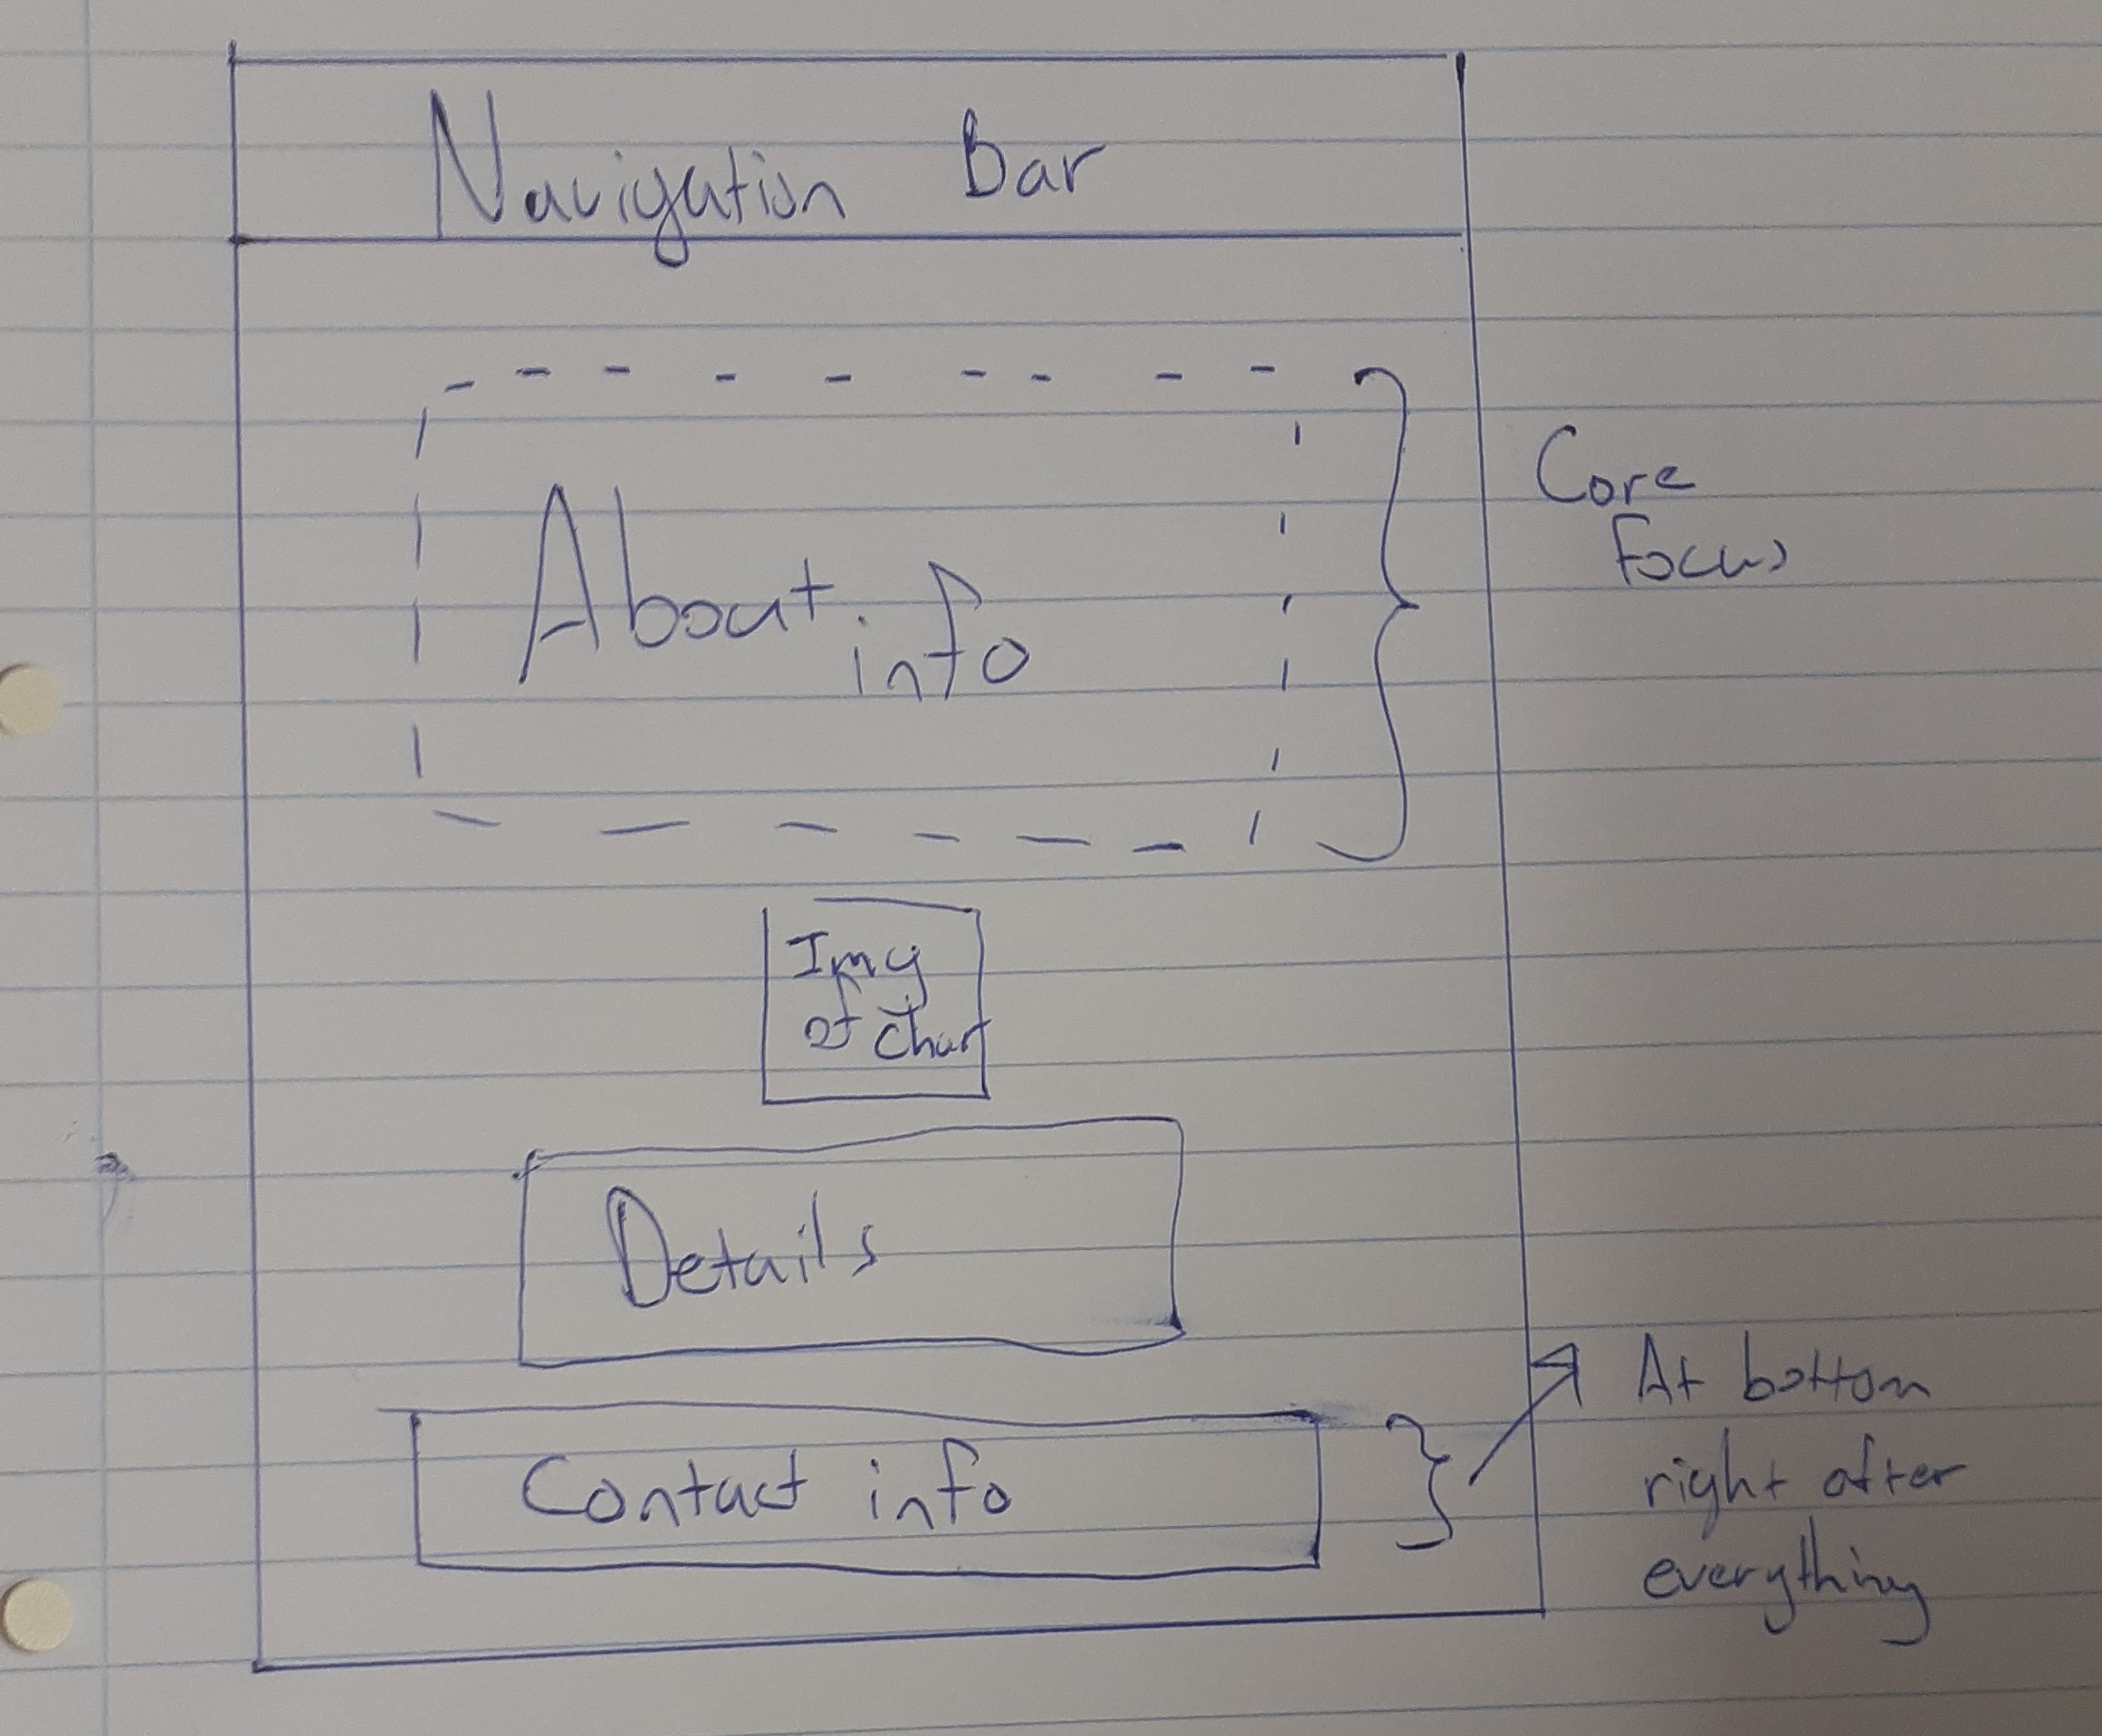 Navigation Bar
About
info
Core
Focus
Img
of Chart
Details
Contact info
At bottom
right after
everything